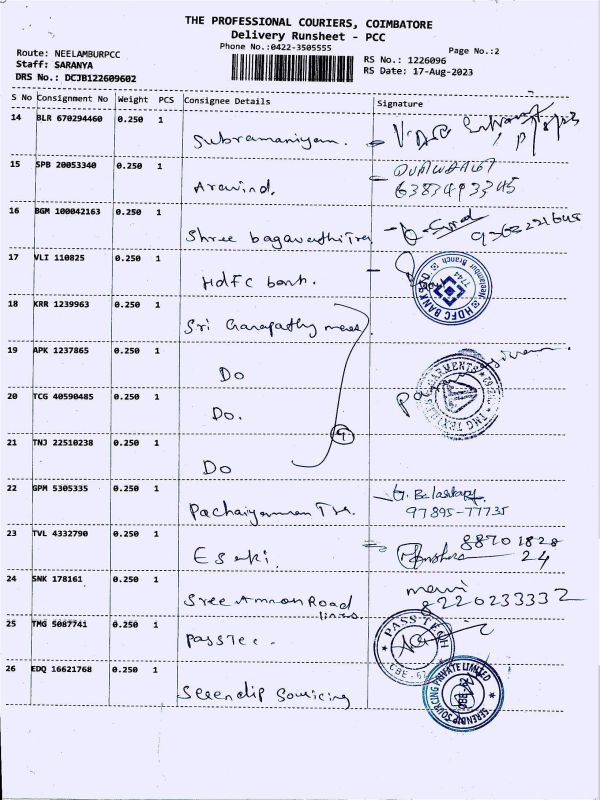 THE PROFESSIONAL COURIERS, COIMBATORE
Delivery Runsheet - PCC
Phone No.:0422-3505555
Page No.:2
Route: NEELAMBURPCC
Staff: SARANYA
DRS No.: DCJB122609602
RS No.: 1226096
RS Date: 17-Aug-2023
S No Consignment No Weight PCS Consignee Details Signature
14 BLR 670294460 0.250 1
Subramaniyam.
15 SPB 20053340 0.250 1
Aravind. 6383493345
16 BGM 100042163 0.250 1
Shree bagavathi Tra
17 VLI 110825 0.250 1
HdFC bank.
HDFC BANK LTD
Neelambur Branch
7744
18 KRR 1239963 0.250 1
Sri Ganapathy
19 APK 1237865 0.250 1
Do
GARMENTS
TMG TEX
20 TCG 40590485 0.250 1
Do.
21 TNJ 22510238 0.250 1
Do
4
22 GPM 5305335 0.250 1
Pachaiyamman Tra.
97895-77735
23 TVL 4332790 0.250 1
Esaki. 88701828
24
24 SNK 178161 0.250 1
Sree Amman Road
lines.
8220233332
25 TMG 5087741 0.250 1
PassTec.
PASS-TECH
CBE-62
26 EDQ 16621768 0.250 1
Serendip Sourcing
SERENDIP SOURCING PRIVATE LIMITED